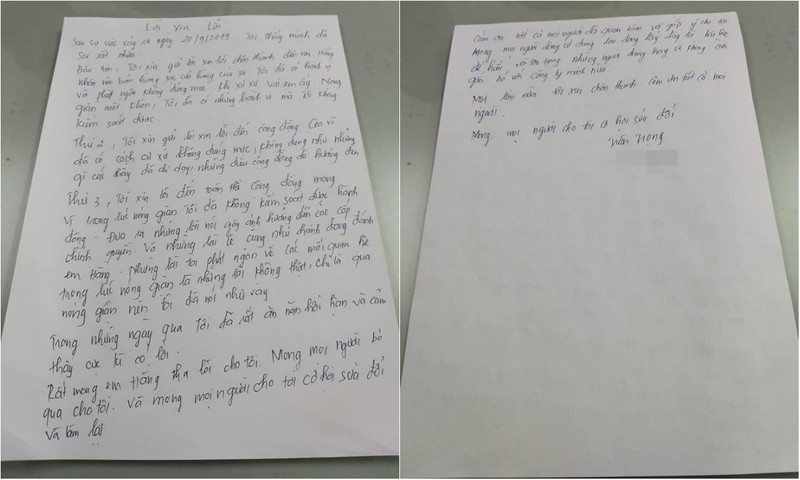 Lời xin lỗi
Sau sự việc xảy ra ngày 20/9/2019 Tôi thấy mình đã
sai rất nhiều
Đầu tiên, Tôi xin gửi lời xin lỗi chân thành đến em
nhân viên bán hàng của cửa hàng của Tôi đã có hành vi
và phát ngôn không đúng mực khi xô xát với em ấy Nóng
giận mất khôn, Tôi đã có những hành vi mà tôi không
kiểm soát được.
Thứ 2, Tôi xin gửi lời xin lỗi đến cộng đồng vì
đã có cách cư xử không đúng mực, không đúng như những
gì các thầy đã chỉ dạy, những điều cộng đồng đã hướng đến
Thứ 3, Tôi xin lỗi đến toàn thể cộng đồng mạng
vì trong lúc nóng giận Tôi đã không kiểm soát được hành
động. Đưa ra những lời nói gây ảnh hưởng đến các cấp
chính quyền. Và những lời lẽ cũng như hành động đánh
em trăng. Những lời tôi phát ngôn về các mối quan hệ
trong lúc nóng giận là những lời không thật, chỉ là quá
nóng giận nên tôi đã nói như vậy.
Trong những ngày qua Tôi đã rất ăn năn hối hận và cảm
thấy cực kì có lỗi.
Rất mong em trăng tha lỗi cho tôi. Mong mọi người bỏ
qua cho tôi. và mong mọi người cho tôi cơ hội sửa đổi
và làm lại
Cảm ơn tất cả mọi người đã quan tâm và góp ý cho tôi
Mong mọi người đừng
và
gắn bó với công ty mình nữa.
Một lần nữa tôi xin chân thành cảm ơn tất cả mọi
người.
Mong mọi người cho tôi cơ hội sửa đổi